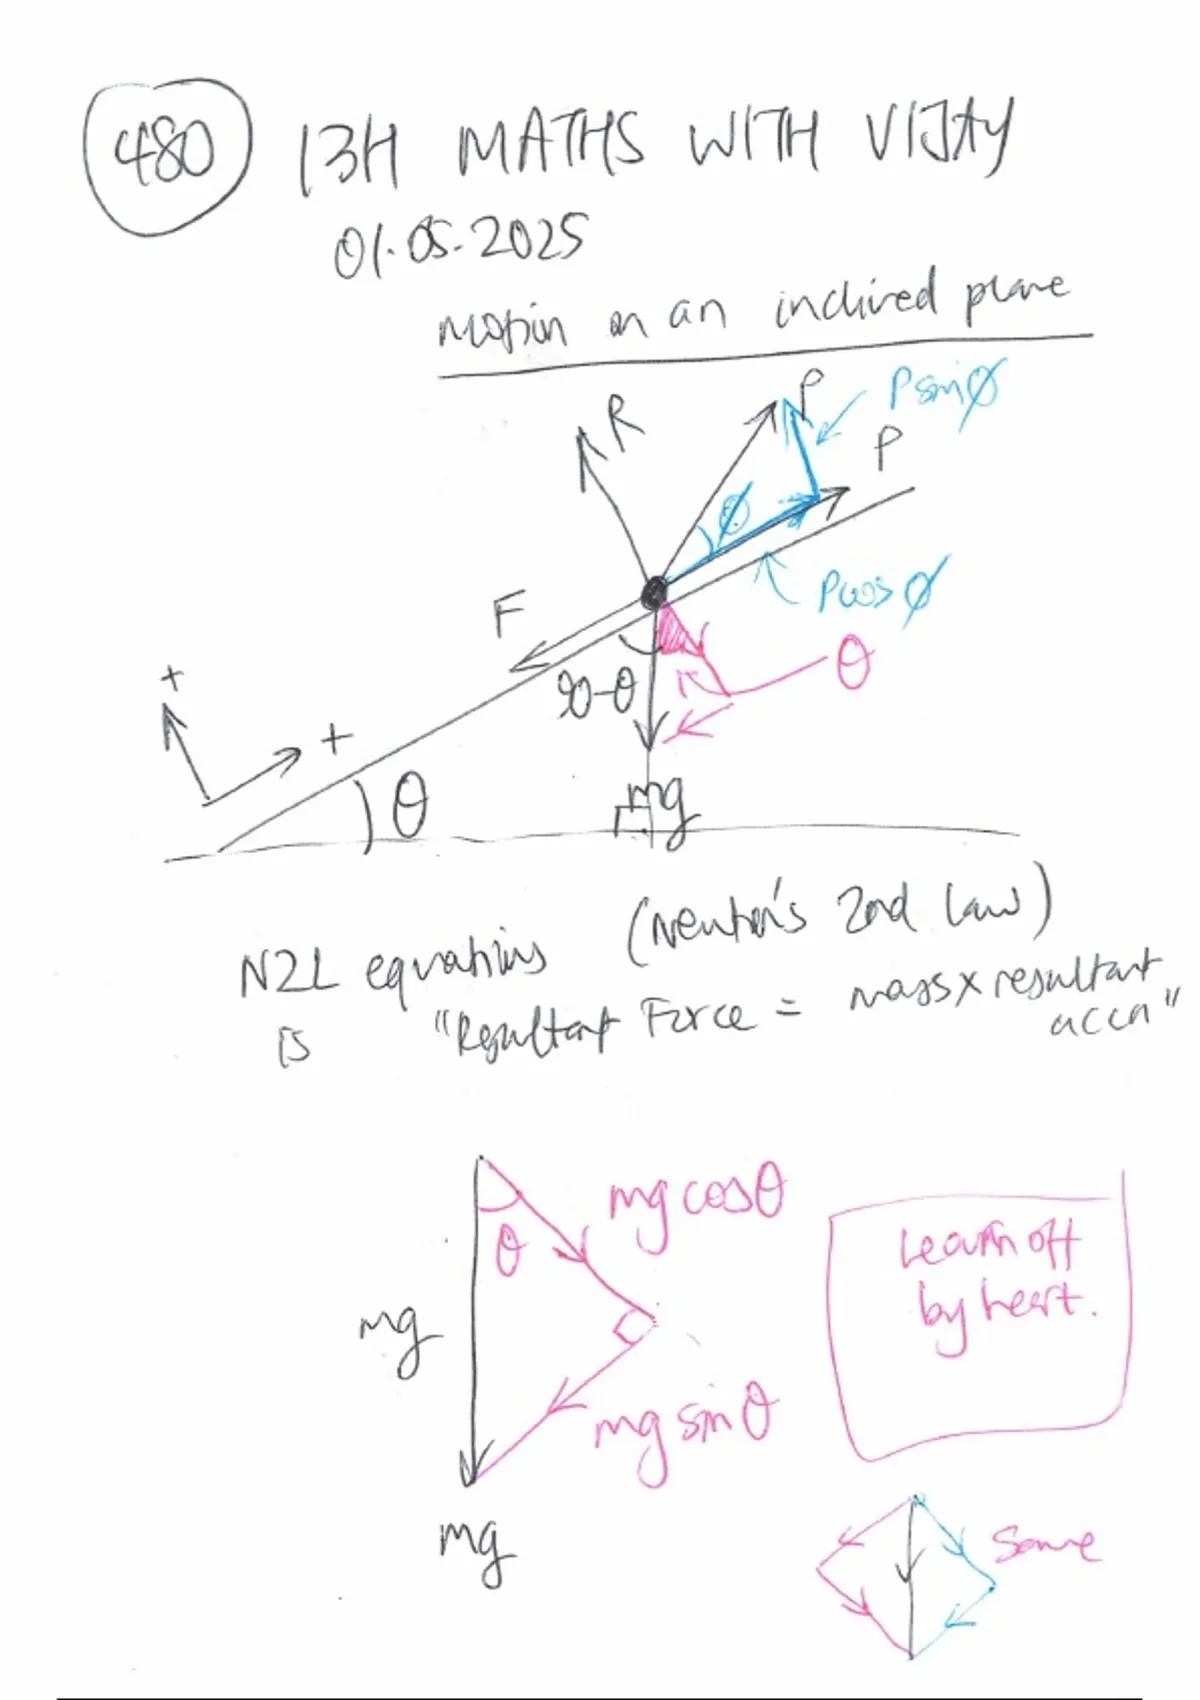 480 13H MATHS WITH VIJAY
01.05.2025
motion on an inclined plane
R
P
P sinø
P
ø
P cosø
F
θ
90-θ
+
+
θ
mg
N2L equations (Newton's 2nd Law)
is "Resultant Force = mass x resultant
accn"
mg cosθ
θ
Learn off
by heart.
mg
mg sinθ
mg
Same